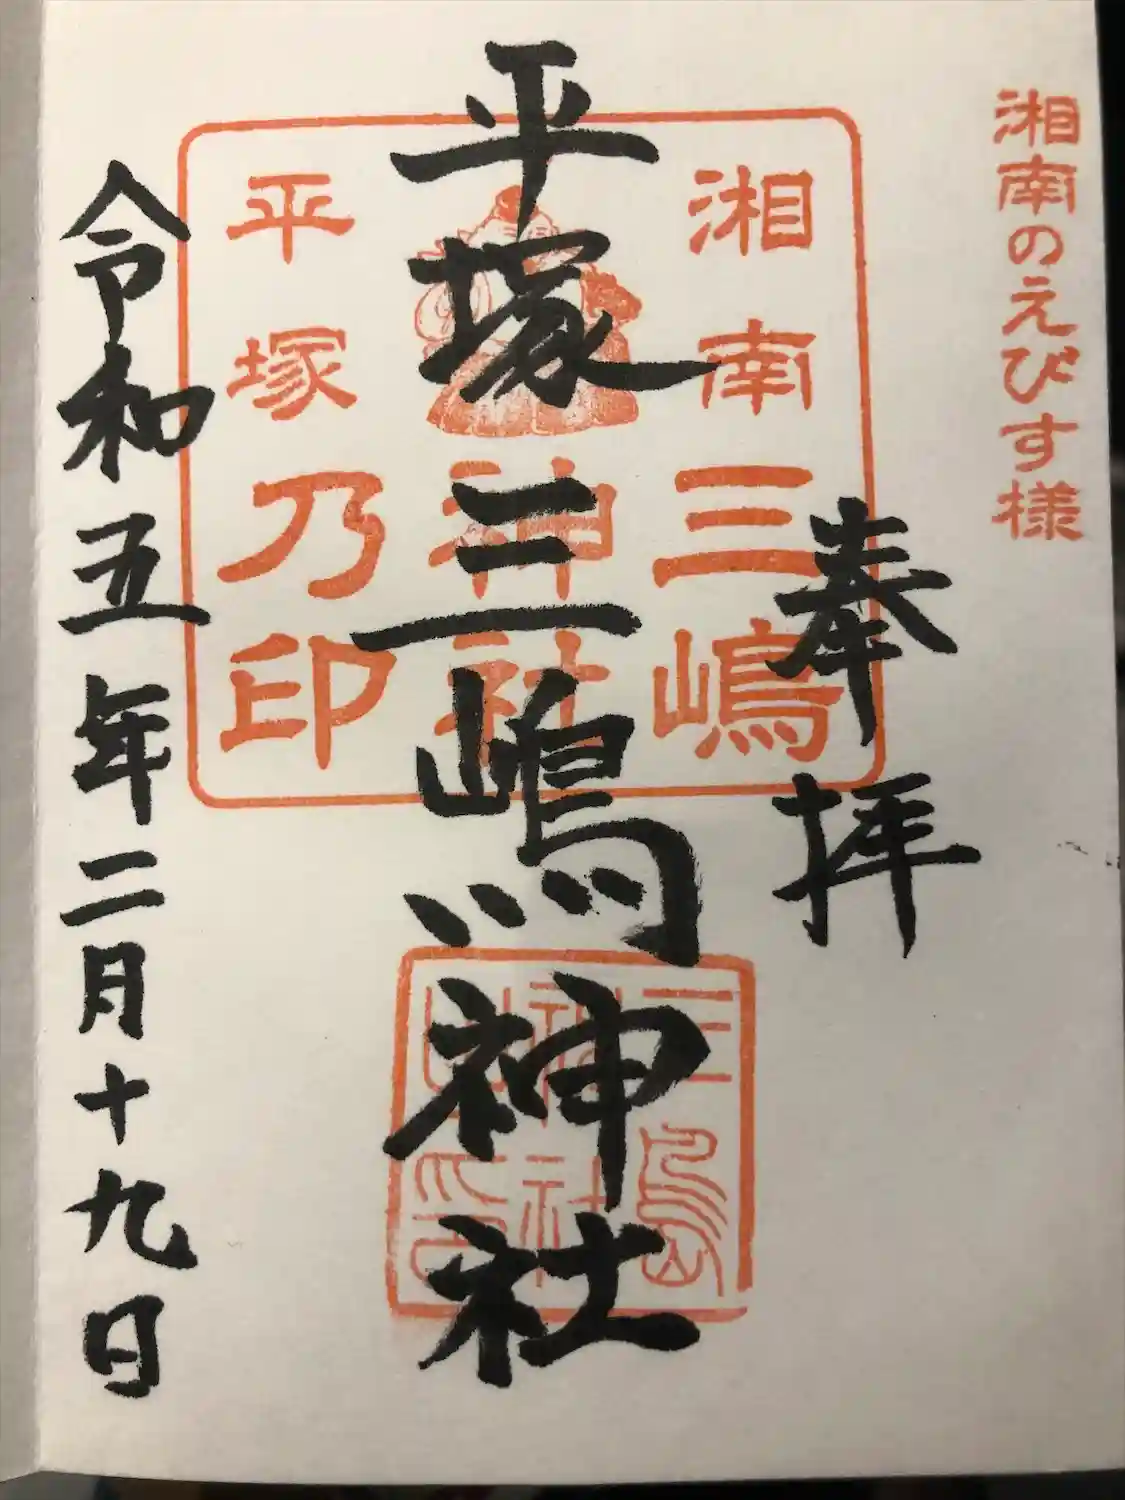 湘南のえびす様
奉拝
湘南三嶋
神社
平塚乃印
平塚三嶋神社
三島
神社
令和五年二月十九日